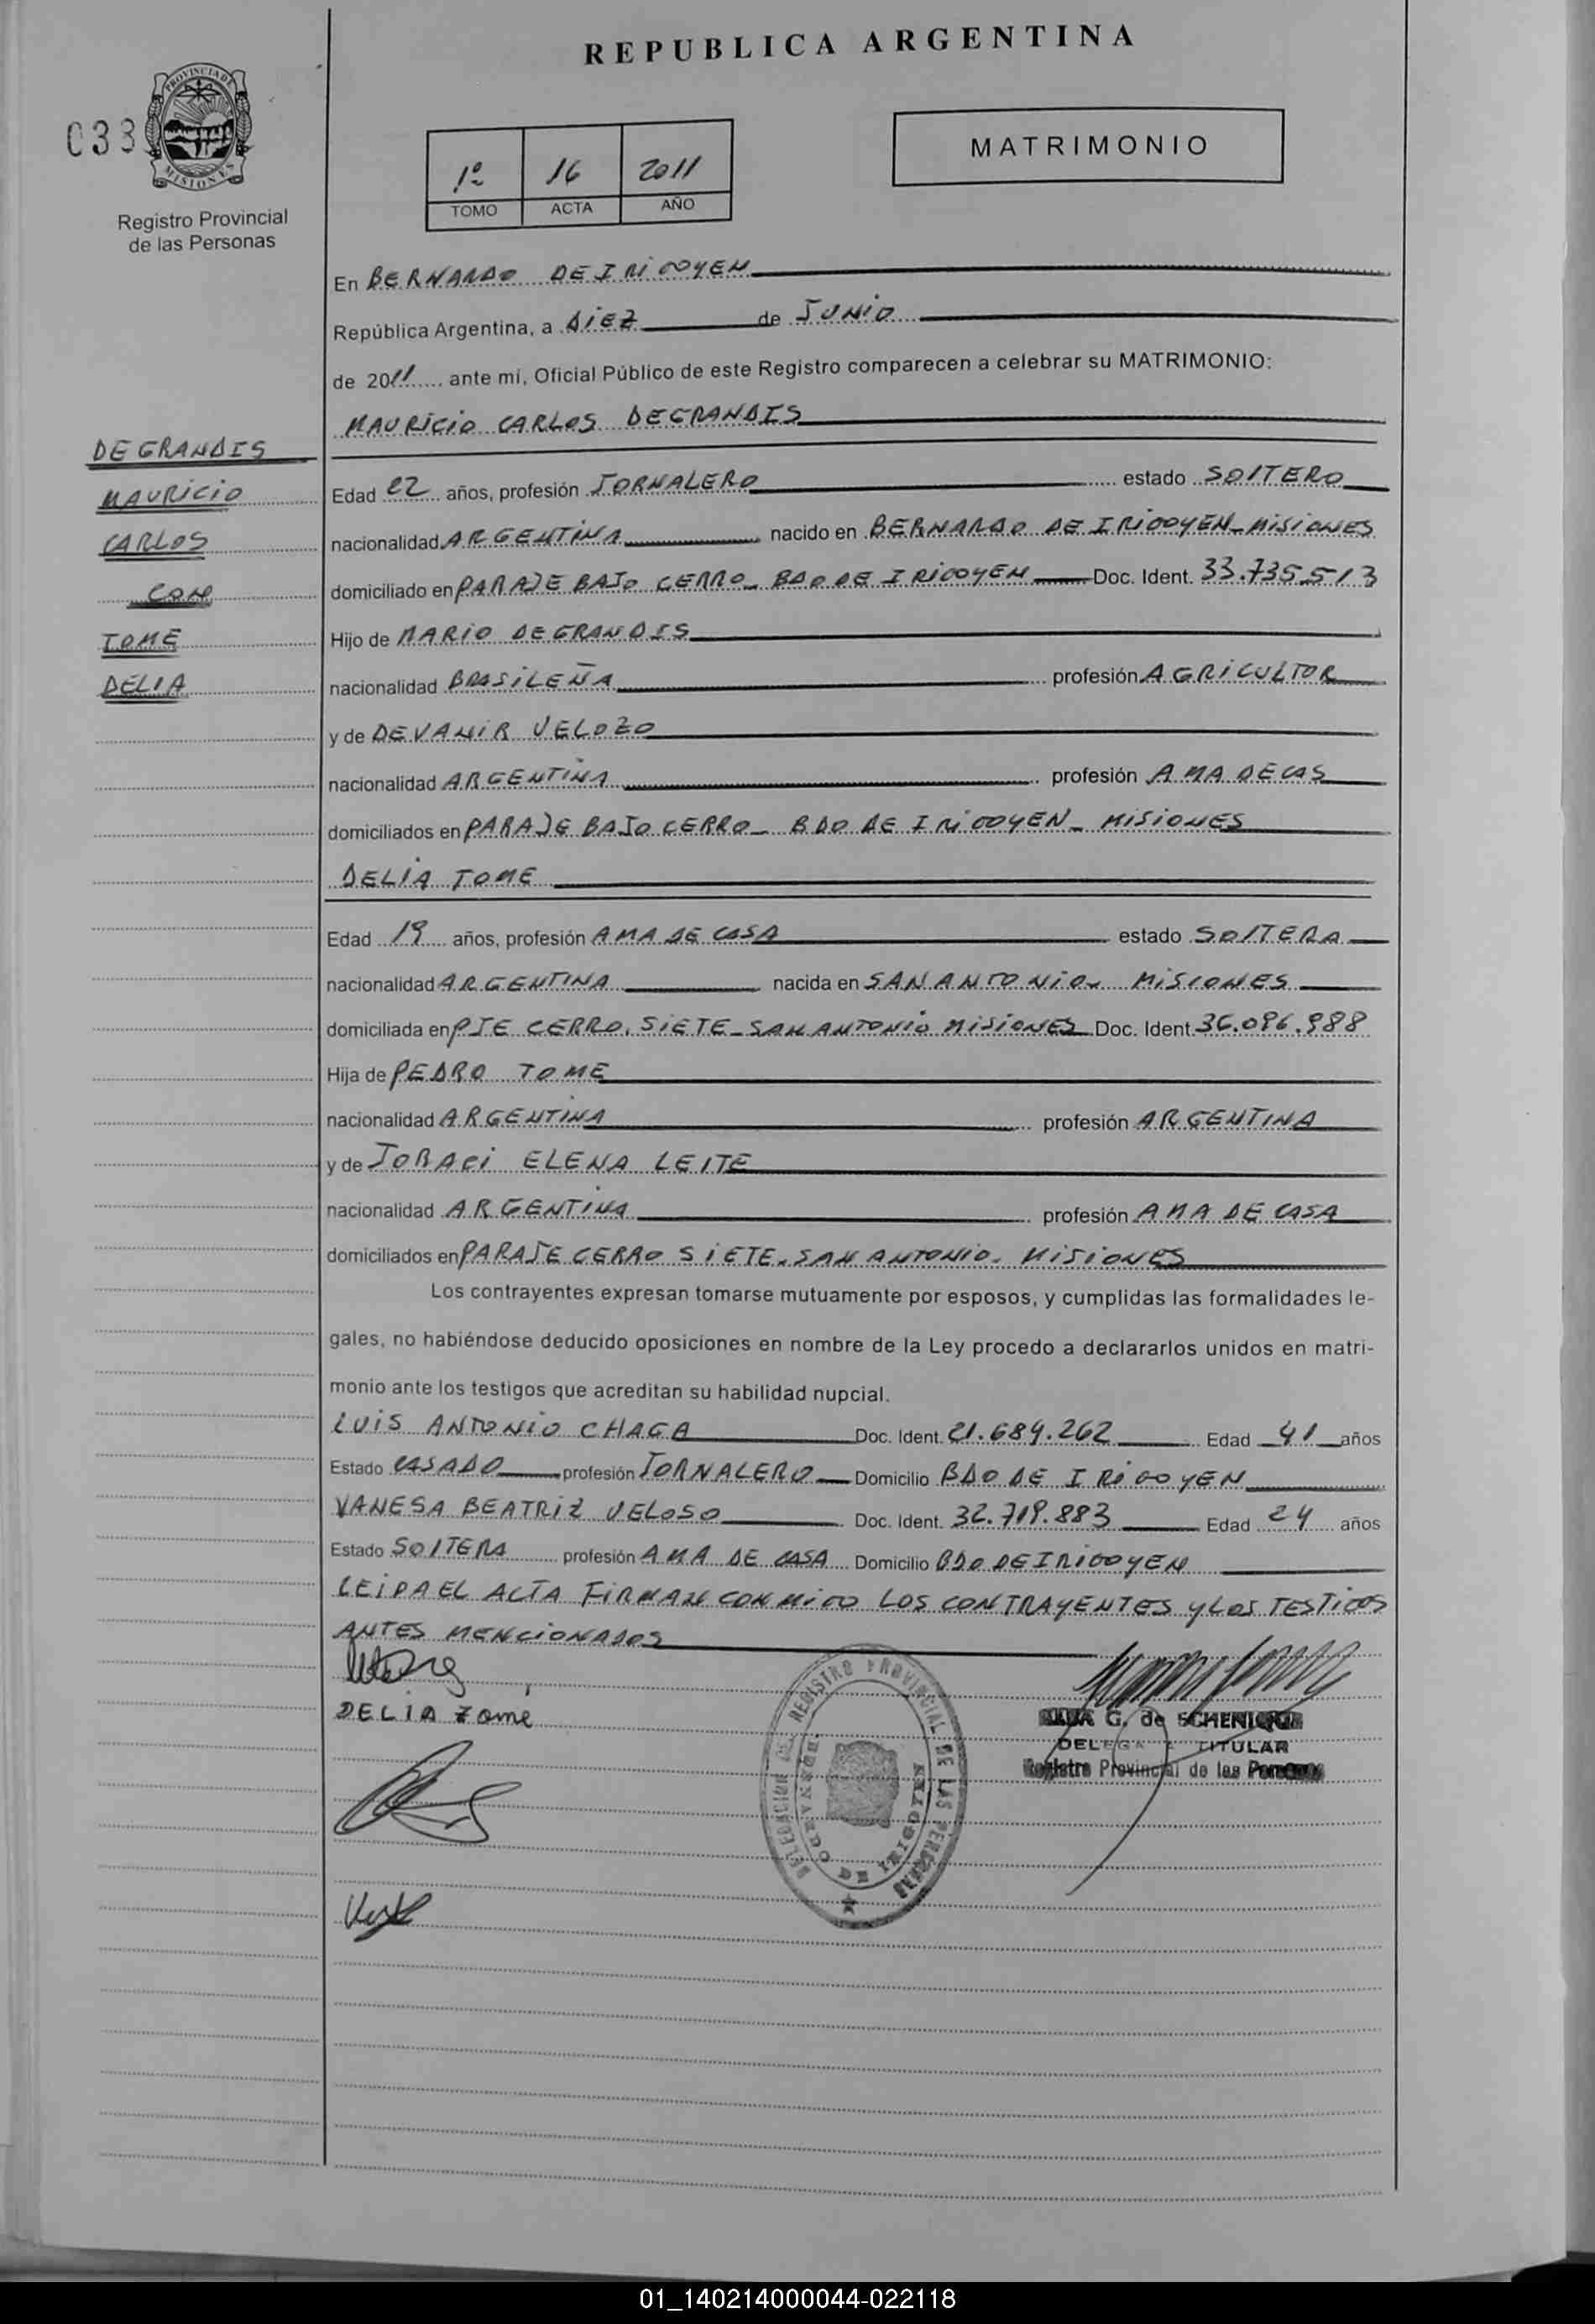 REPUBLICA ARGENTINA
033
PROVINCIA DE
MISIONES
Registro Provincial
de las Personas
1º 16 2011
TOMO ACTA AÑO
MATRIMONIO
En BERNARDO DE IRIGOYEN
República Argentina, a DIEZ de JUNIO
de 2011 ante mí, Oficial Público de este Registro comparecen a celebrar su MATRIMONIO:
MAURICIO CARLOS DEGRANDIS
DEGRANDIS
MAURICIO
CARLOS
CON
TOME
DELIA
Edad 22 años, profesión JORNALERO estado SOLTERO
nacionalidad ARGENTINA nacido en BERNARDO DE IRIGOYEN_MISIONES
domiciliado en PARAJE BAJO CERRO_ BDO DE IRIGOYEN Doc. Ident. 33.735.513
Hijo de MARIO DEGRANDIS
nacionalidad BRASILEÑA profesión AGRICULTOR
y de DEVANIR VELOZO
nacionalidad ARGENTINA profesión AMA DE CAS
domiciliados en PARAJE BAJO CERRO_ BDO DE IRIGOYEN_ MISIONES
DELIA TOME
Edad 19 años, profesión AMA DE CASA estado SOLTERA
nacionalidad ARGENTINA nacida en SAN ANTONIO_ MISIONES
domiciliada en PJE CERRO SIETE_SAN ANTONIO MISIONES Doc. Ident. 36.096.988
Hija de PEDRO TOME
nacionalidad ARGENTINA profesión ARGENTINA
y de JORACI ELENA LEITE
nacionalidad ARGENTINA profesión AMA DE CASA
domiciliados en PARAJE CERRO SIETE_SAN ANTONIO_ MISIONES
Los contrayentes expresan tomarse mutuamente por esposos, y cumplidas las formalidades le-
gales, no habiéndose deducido oposiciones en nombre de la Ley procedo a declararlos unidos en matri-
monio ante los testigos que acreditan su habilidad nupcial.
LUIS ANTONIO CHAGA Doc. Ident. 21.684.262 Edad 41 años
Estado CASADO profesión JORNALERO Domicilio BDO DE IRIGOYEN
VANESA BEATRIZ VELOSO Doc. Ident. 32.719.883 Edad 24 años
Estado SOLTERA profesión AMA DE CASA Domicilio BDO DE IRIGOYEN
LEIDA EL ACTA FIRMAN CONMIGO LOS CONTRAYENTES y LOS TESTIGOS
ANTES MENCIONADOS
DELIA Tomé
DELEGACION DEL REGISTRO PROVINCIAL DE LAS PERSONAS
BERNARDO DE IRIGOYEN
G. de SCHENIGER
DELEGADA TITULAR
Registro Provincial de las Personas
01_140214000044-022118